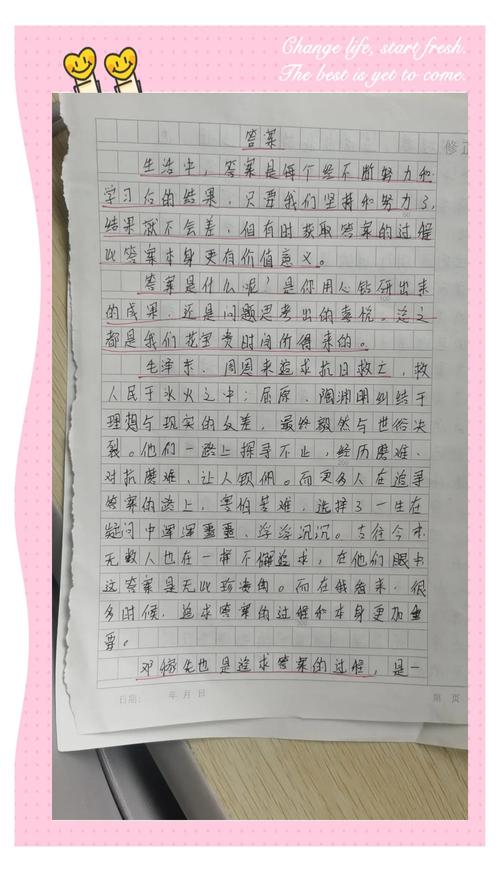 Change life, start fresh.
The best is yet to come.
答案
修正
生活中，答案是每个经不断努力和
学习后的结果，只要我们坚持和努力了，
结果就不会差，但有时获取答案的过程
比答案本身更有价值意义。
答案是什么呢？是你用心钻研出来
的成果，还是问题思考出的喜悦。总之
都是我们花宝贵时间所得来的。
毛泽东、周恩来追求抗日救亡，救
人民于水火之中；屈原、陶渊明纠结于
理想与现实的反差，最终毅然与世俗决
裂。他们一路上探寻不止，经历磨难，
对抗磨难，让人钦佩。而更多人在追寻
答案的路上，害怕苦难，选择了一生在
疑问中浑浑噩噩、浮浮沉沉。古往今来
无数人也在一样不懈追求，在他们眼中
这答案是无比珍贵的。而在我看来，很
多时候，追求答案的过程和本身更加重
要。
邓稼先也是追求答案的过程，是一
日期： 年 月 日
第 页